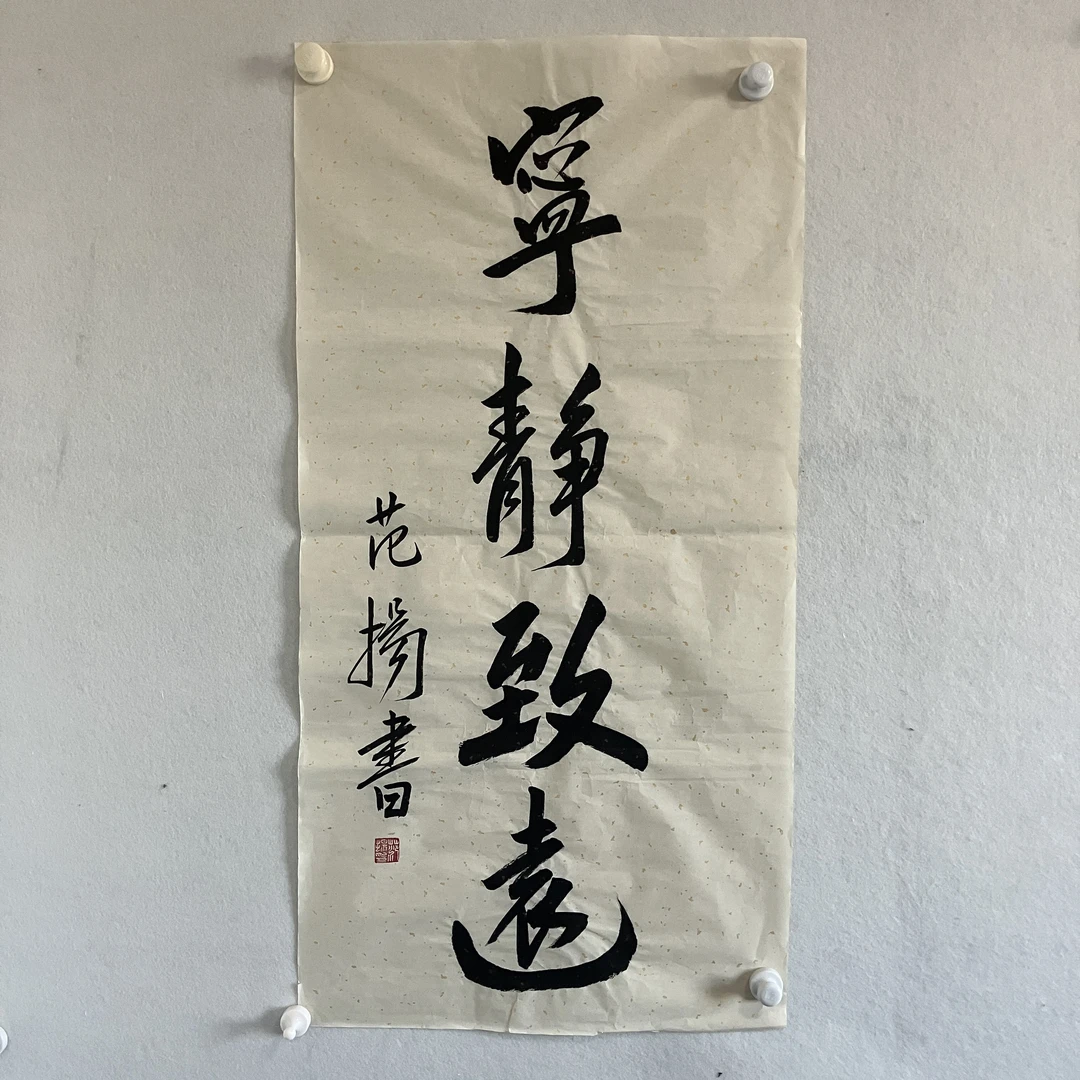 寧靜致遠
范揚書